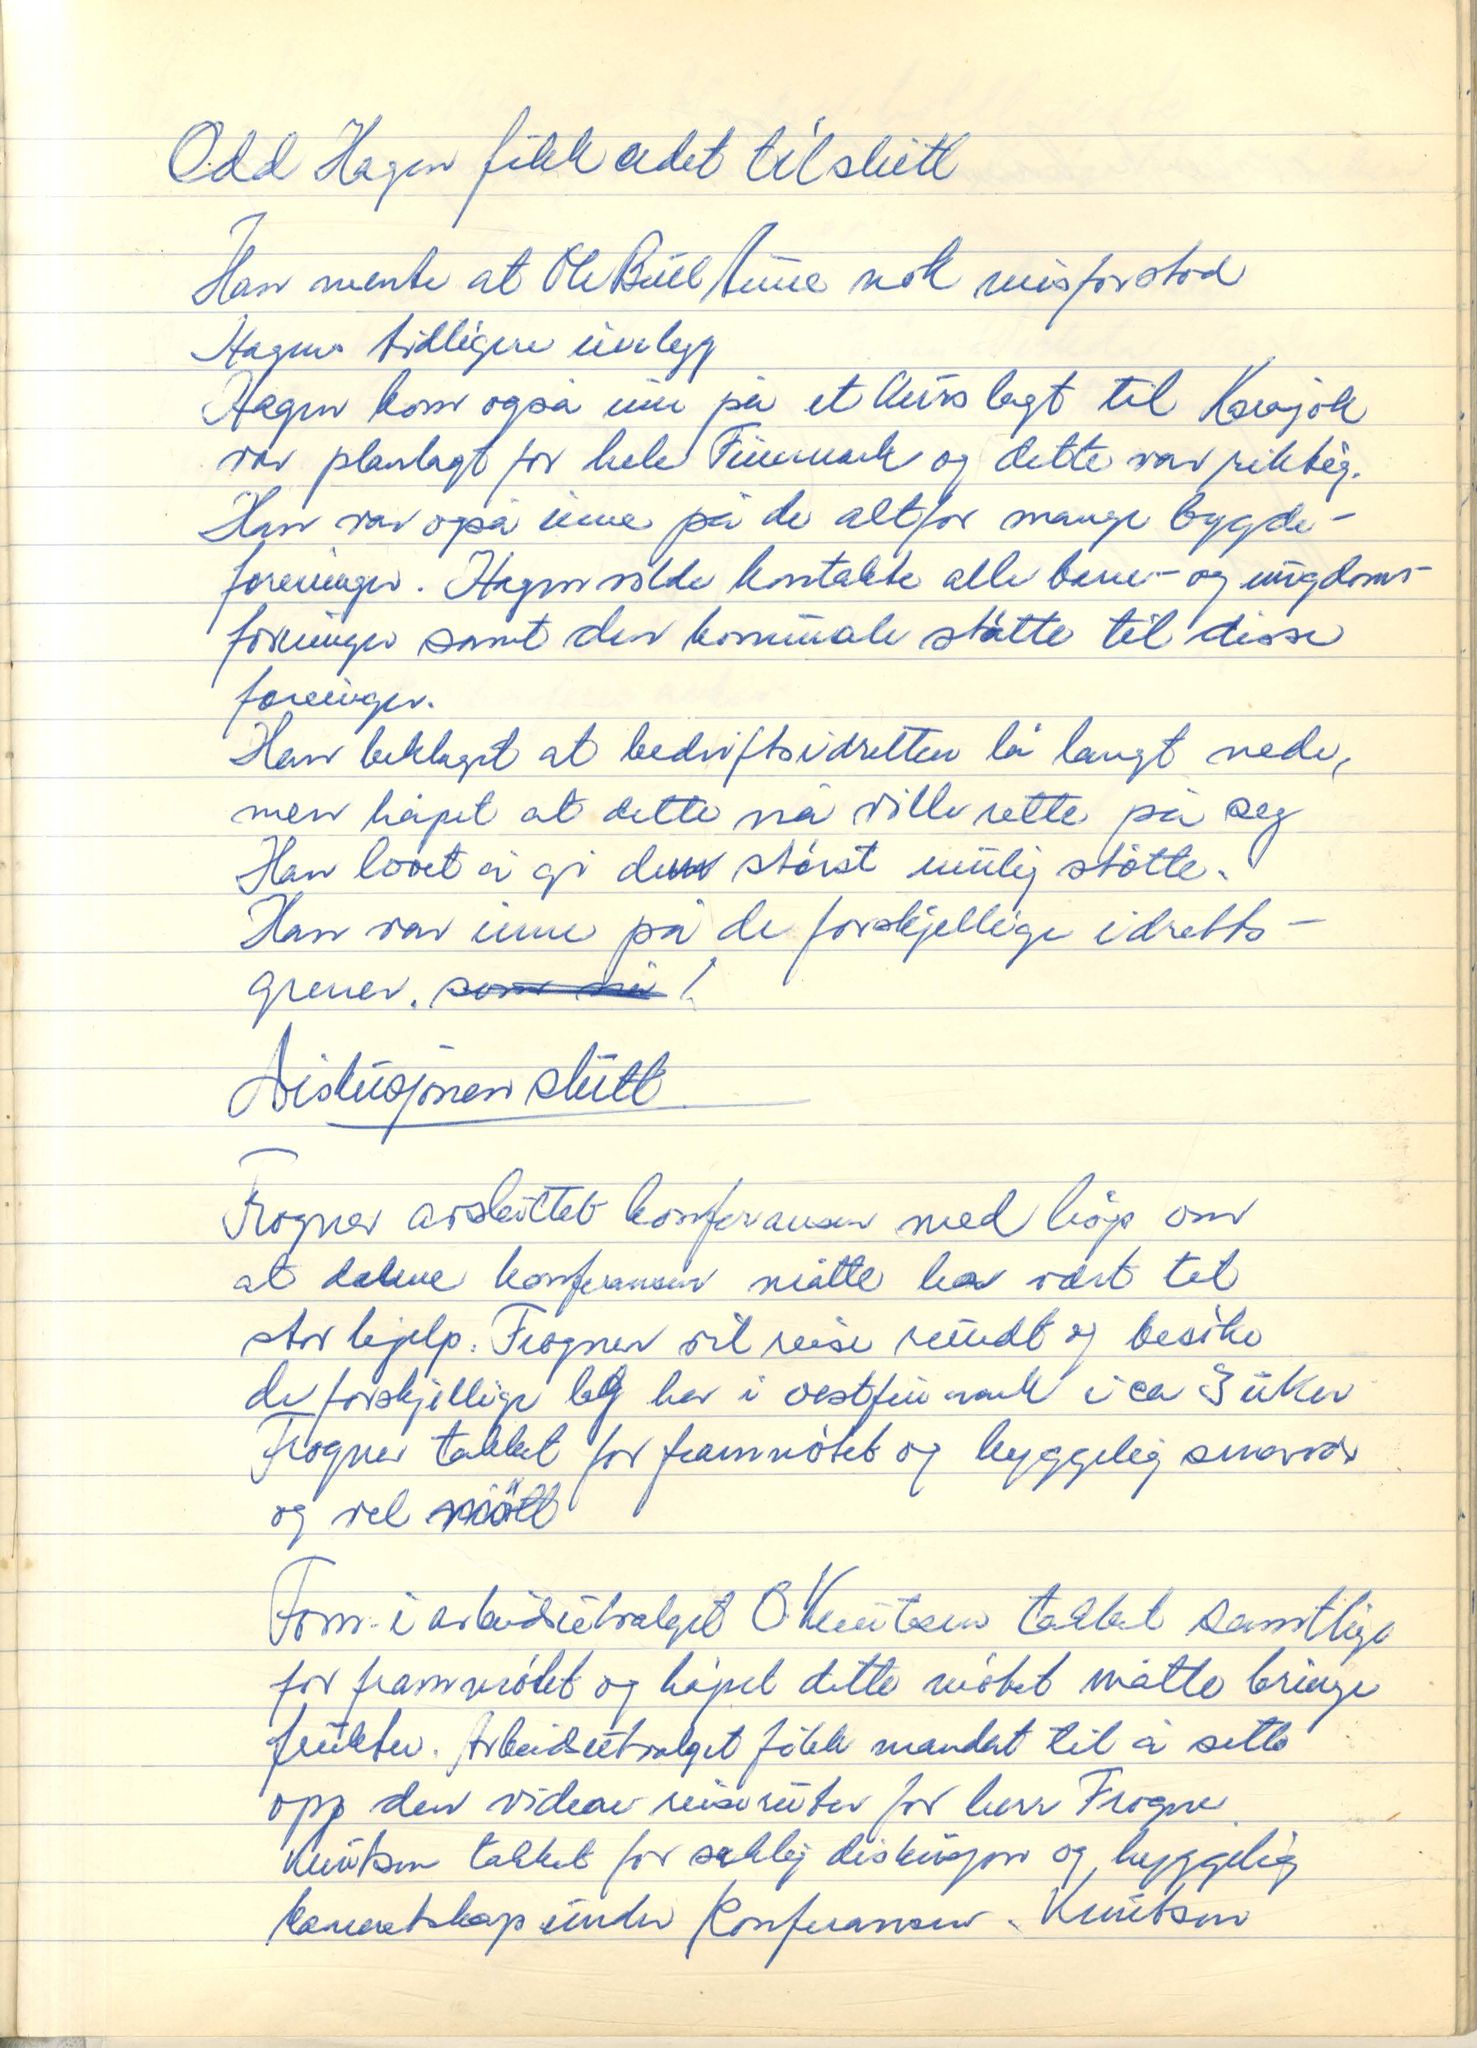 Odd Hagen fikk ordet til slutt
Han mente at Ole Bull Tuue nok misforstod
Hagens tidligere innlegg
Hagen kom også inn på et kurs lagt til Karasjok
var planlagt for hele Finnmark og dette var riktig.
Han var også inne på de altfor mange bygde-
foreninger. Hagen vilde kontakte alle barne- og ungdoms-
foreninger samt den kommunale støtte til disse
foreninger.
Han beklaget at bedriftsidretten lå langt nede,
men håpet at dette nå ville rette på seg
Han lovet å gi den størst mulig støtte.
Han var inne på de forskjellige idretts-
grener. som nå!
Diskusjonen slutt
Frogner avsluttet konferansen med håp om
at denne konferansen måtte ha vært til
stor hjelp. Frogner vil reise rundt og besøke
de forskjellige lag her i vestfinnmark i ca 3 uker
Frogner takket for frammøtet og hyggelig samvær
og vel møtt
Form. i arbeidsutvalget O. Knutsen takket samtlige
for frammøtet og håpet dette møtet måtte bringe
frukter. Arbeidsutvalget fikk mandat til å sette
opp den videre reiseruten for herr Frogner
Knutsen takket for saklig diskusjon og hyggelig
kameratskap under konferansen. Knutsen